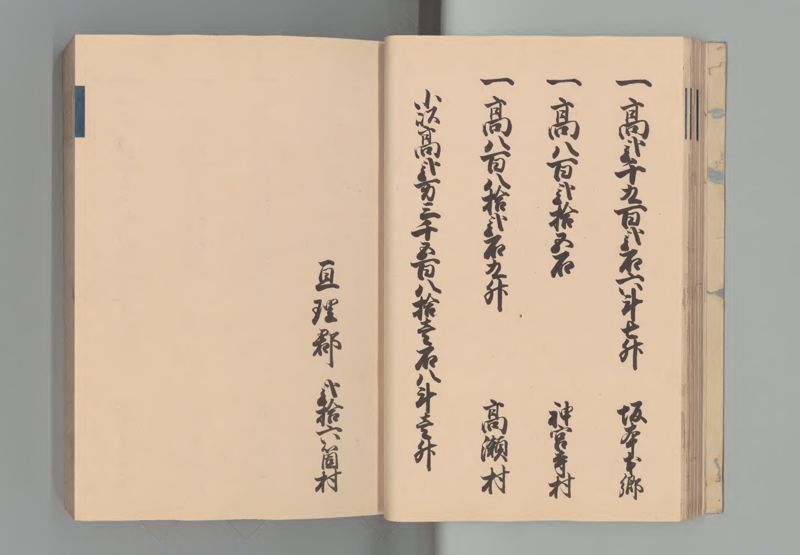 一高弐千九百弐石六斗七升　坂本本郷
一高八百弐拾五石　神宮寺村
一高八百八拾弐石九升　高瀬村
小以高弐万三千五百八拾壱石八斗壱升
亘理郡　弐拾六箇村